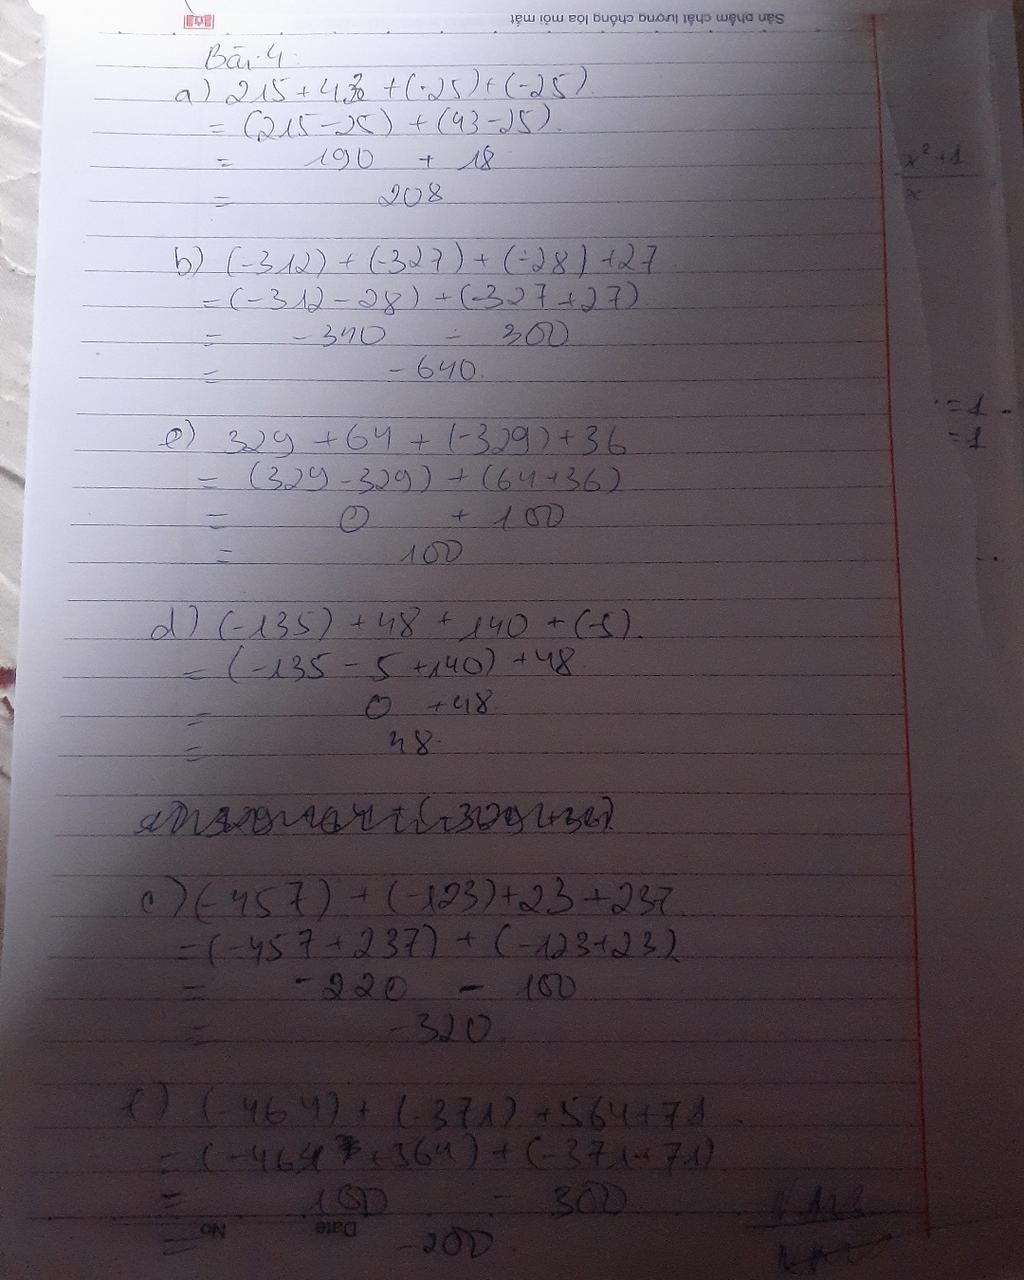 Sản phẩm chất lượng chống lóa mỏi mắt
Bài 4
a) 215 + 43 + (-25) + (-25)
= (215 - 25) + (43 - 25)
= 190 + 18
= 208
b) (-312) + (-327) + (-28) + 27
= (-312 - 28) + (-327 + 27)
= -340 - 300
= -640
e) 329 + 64 + (-329) + 36
= (329 - 329) + (64 + 36)
= 0 + 100
= 100
d) (-135) + 48 + 140 + (-5)
= (-135 - 5 + 140) + 48
= 0 + 48
= 48
c) (-457) + (-123) + 23 + 237
= (-457 + 237) + (-123 + 23)
= -220 - 100
= -320
f) (-464) + (-371) + 564 + 71
= (-464 + 564) + (-371 + 71)
= 100 - 300
= -200
No Date
x² + 1
x
= 1
= 1